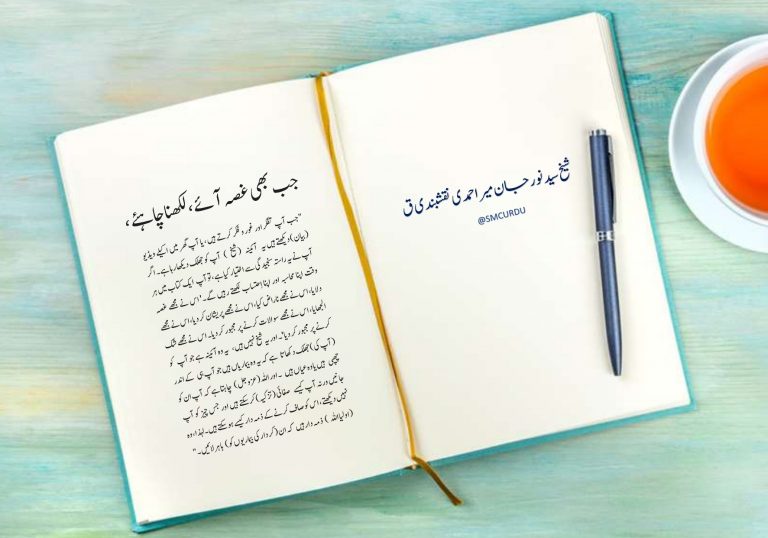 جب بھی غصہ آئے، لکھنا چاہئے،
"جب آپ تفکر اور غور و فکر کرتے ہیں، یا آپ گھر میں اکیلے ویڈیو
(بیان) دیکھتے ہیں یہ آئینہ (شیخ) آپ کو جھلک دیکھا رہا ہے۔ اگر
آپ نے یہ راستہ سنجیدگی سے اختیار کیا ہے، تو آپ ایک کتاب میں ہر
وقت اپنا محاسبہ اور اپنا احتساب لکھتے رہیں گے۔ 'اس نے مجھے غصہ
دلایا، اس نے مجھے ناراض کیا، اس نے مجھے پریشان کر دیا، اس نے مجھے
الجھایا، اس نے مجھے سوالات کرنے پر مجبور کر دیا۔ اس نے مجھے شک
کرنے پر مجبور کر دیا'۔ اور یہ شیخ نہیں ہیں، یہ وہ آئینہ ہے جو آپ کو
(آپ کی) جھلک دکھاتا ہے کہ یہ وہ بیماریاں ہیں جو آپ ہی کے اندر
چھپی ہیں یا وہ عیاں ہیں ۔ اور اللہ (عزوجل) چاہتا ہے کہ آپ ان کو
جانیں ورنہ آپ کیسے صفائی (تزکیہ) کر سکتے ہیں اور جس چیز کو آپ
نہیں دیکھتے، اس کو صاف کرنے کے ذمہ دار کیسے ہو سکتے ہیں۔ لہٰذا، وہ
(اولیااللہ) ذمہ دار ہیں کہ ان (کردار کی بیماریوں کو) باہر لائیں۔ "
شیخ سید نورجان میر احمدی نقشبندی ق
@SMCURDU